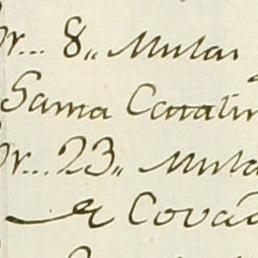 r... 8,, Mulas
Sama Catalin
r... 23,, Mula
Covad